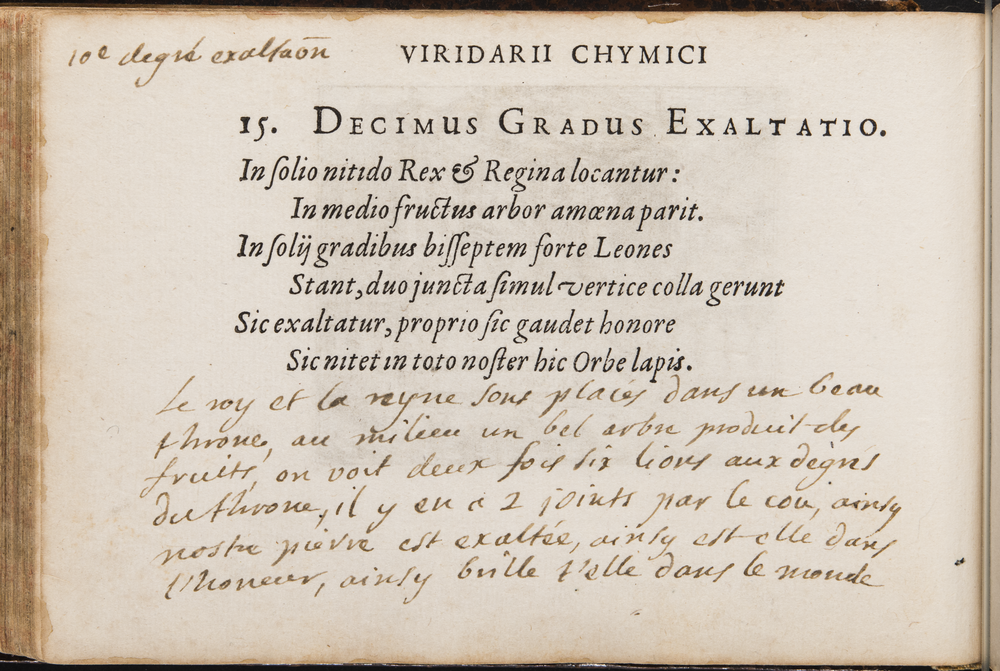 10e degré exaltaōn
VIRIDARII CHYMICI
15. DECIMUS GRADUS EXALTATIO.
In ſolio nitido Rex & Regina locantur:
In medio fructus arbor amœna parit.
In ſolij gradibus biſſeptem forte Leones
Stant, duo juncta ſimul vertice colla gerunt
Sic exaltatur, proprio ſic gaudet honore
Sic nitet in toto noſter hic Orbe lapis.
Le roy et la reyne sont placés dans un beau
throne, au milieu un bel arbre produit des
fruits, on voit deux fois six lions aux dégrés
du throne, il y en a 2 joints par le cou, ainsy
nostre pierre est exaltée, ainsy est elle dans
l'honeur, ainsy brille t'elle dans le monde